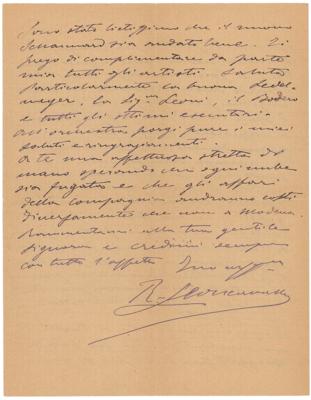 Sono stato lietissimo che il nuovo
Schaunard sia andato bene. Ti
prego di complimentare da parte
mia tutti gli artisti. Saluta
particolarmente la buona
la Sig.na Leoni, il Bodero
e tutti gli ottimi esecutori.
All'orchestra porgi pure i miei
saluti e ringraziamenti.
A te una affettuosa stretta di
mano sperando che ogni nube
sia fugata e che gli affari
della compagnia andranno costì
diversamente che non a Modena.
Rammentami alla tua gentile
Signora e credimi sempre
con tutto l'affetto Tuo aff.
R. Leoncavallo